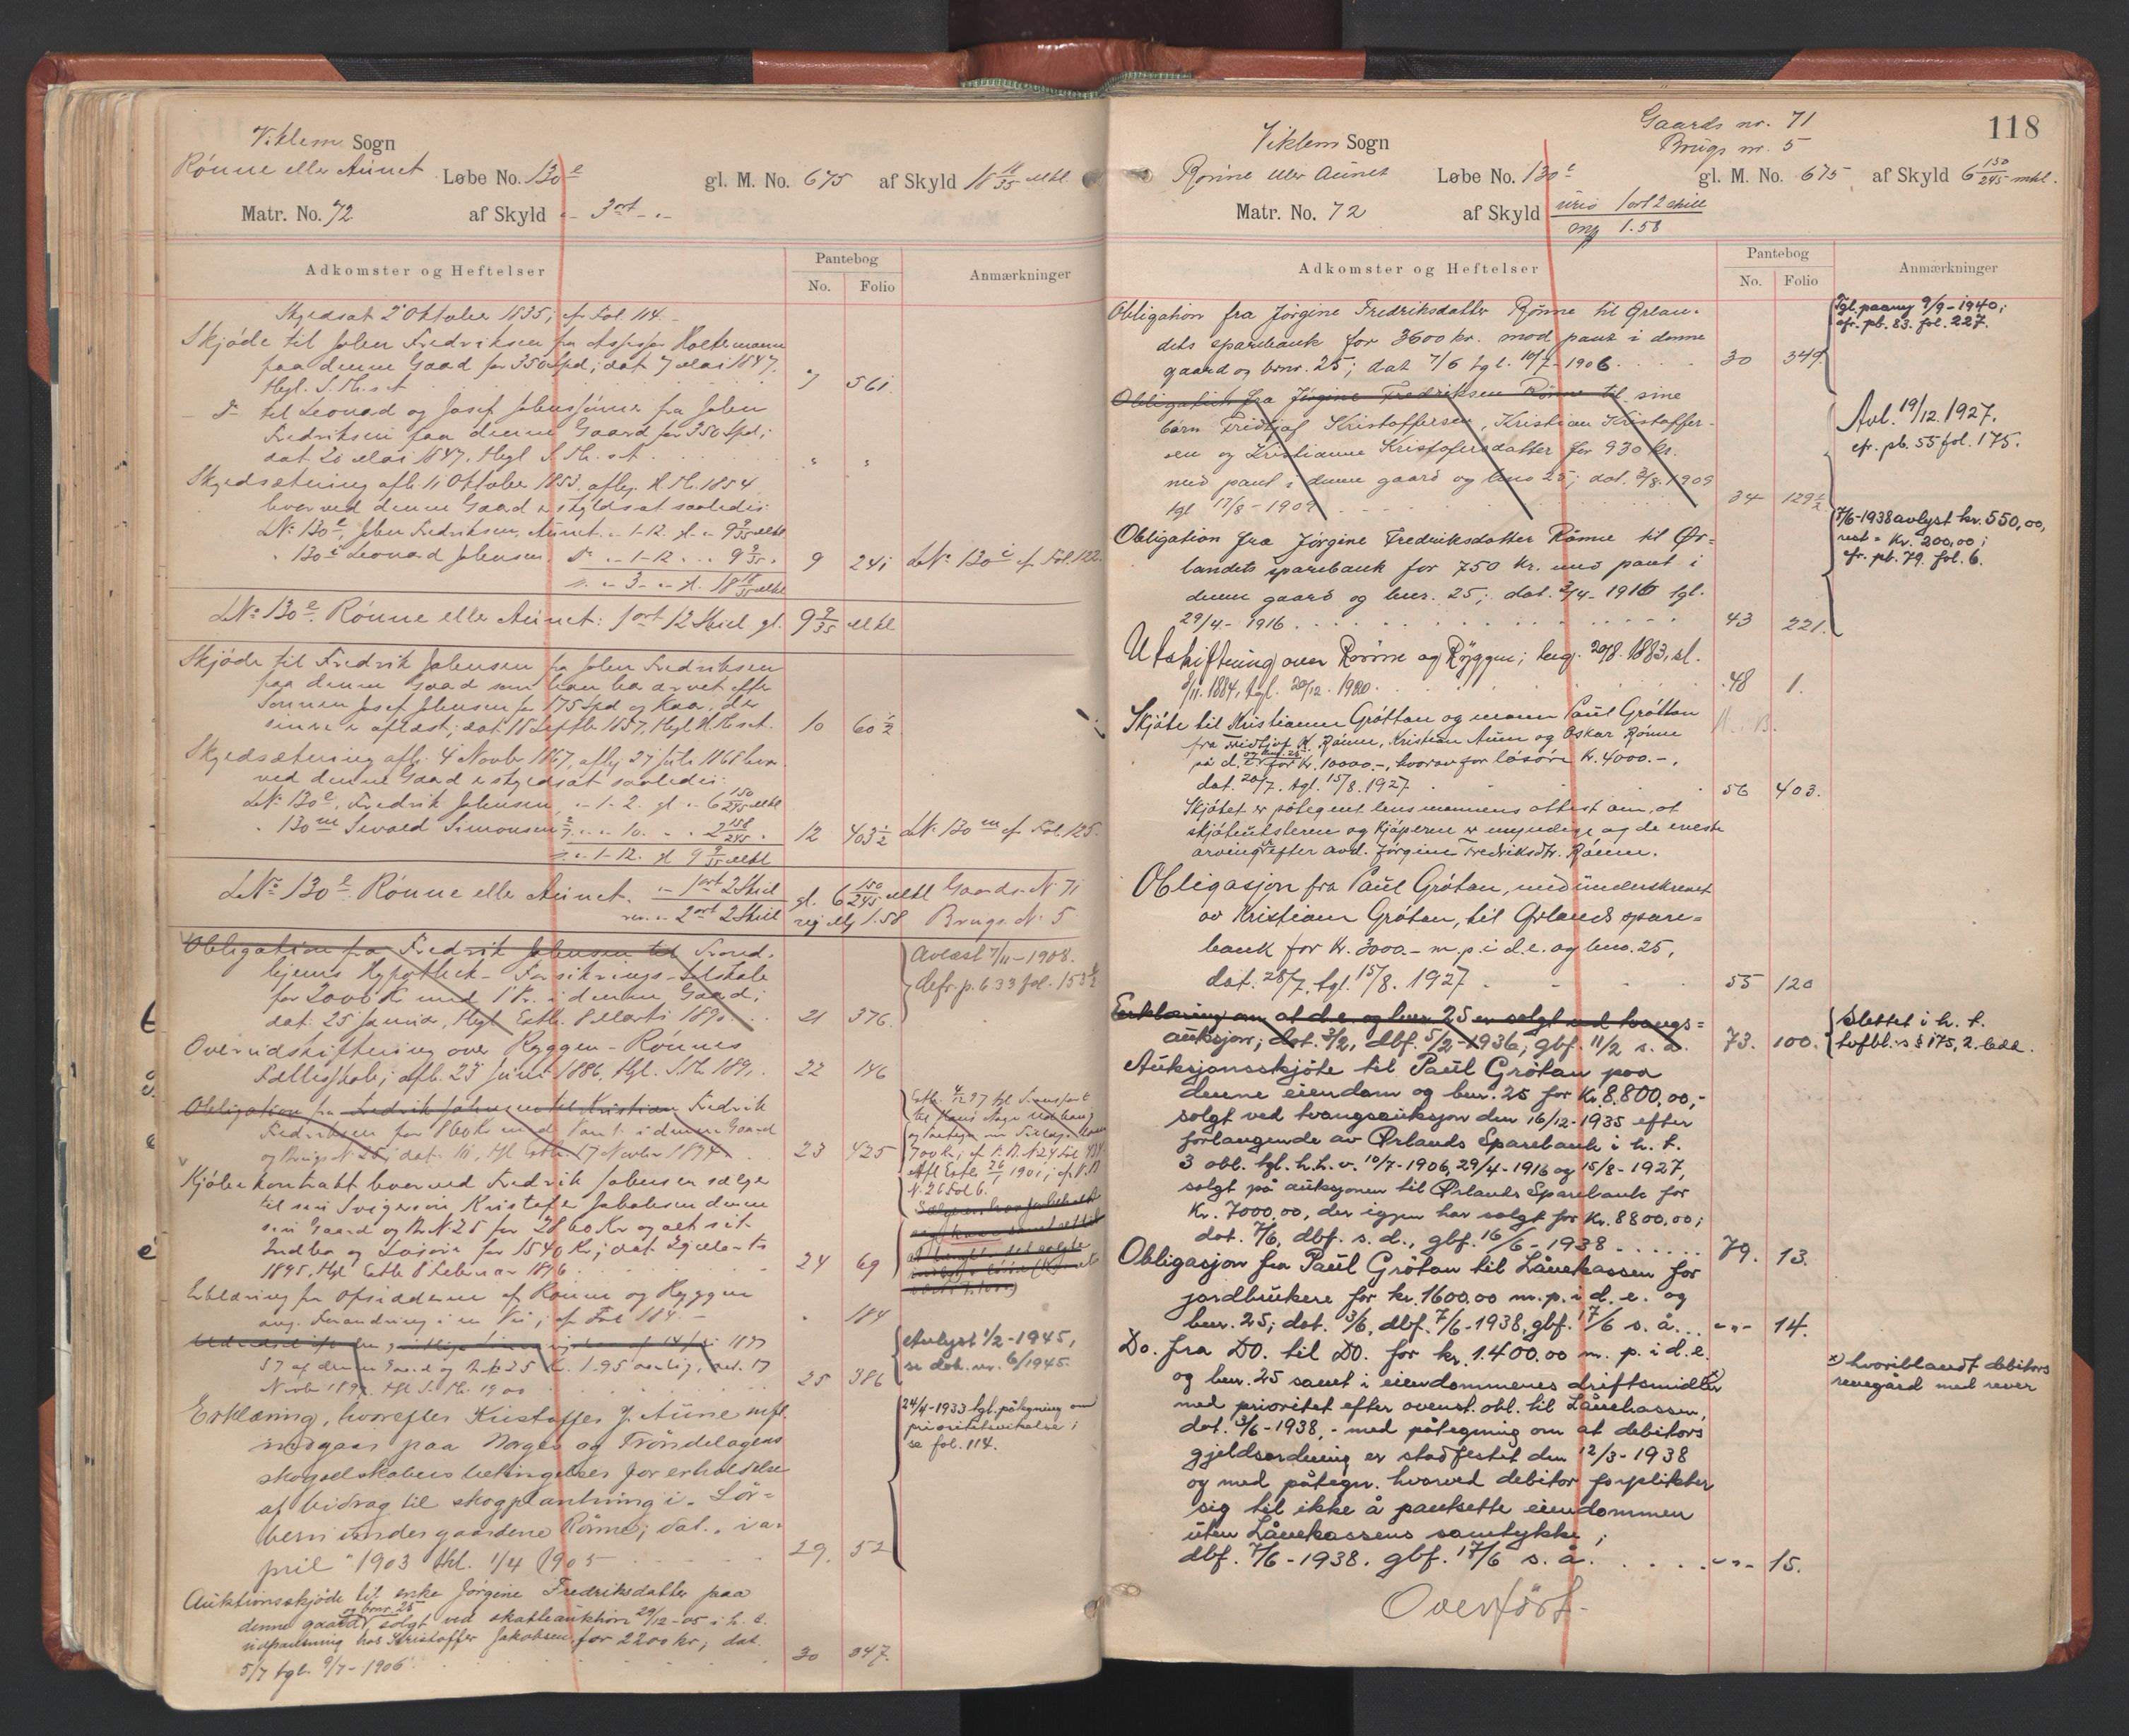 Viklem Sogn
Rönne eller Aunet Løbe No. 130 e gl. M. No. 675 af Skyld 18 11/35 mkl.
Matr. No. 72 af Skyld „- 3 ort -„-
Adkomster og Heftelser Pantebog No. Folio Anmærkninger
Skyldsat 2 Oktober 1835, cfr Fol. 114.
Skjöde til John Fredriksen fra Assessor Holtermann
paa denne Gaard for 350 Spd; dat 7 Mai 1847,
thgl. S. Th. s A 7 561.
D° til Leonard og Josef Johnssönner fra John
Fredriksen paa denne Gaard for 350 Spd;
dat. 20 Mai 1847. thgl S. Th. s A.
Skyldsætning afh. 11 Oktober 1853, afhj. H. Th. 1854
hvorved denne Gaard er skyldsat saaledes:
L№ 130 e, John Fredriksen, Aunet „- 1-12 gl. „ 9 9/35 mkl
" 130 i Leonard Johnsen, D° „- 1-12 „ 9 9/35 " 9 241 L№ 130 i cf. Fol. 122.
„- 3 -„- gl. 18 18/35 mkl
L№ 130 e. Rönne eller Aunet: 1 ort 12 Skill gl. 9 9/35 mkl
Skjöde til Fredrik Johnsen fra John Fredriksen
paa denne Gaard som han har arvet efter
Sönnen Josef Johnsen for 175 Spd og Kaar, der
sinere er aflæst; dat. 18 Septbr 1857, thgl H. Th. s A. 10 60 1/2
Skyldsætning afh. 4 Novbr 1867, afhj 27 Juli 1868 hvor
ved denne Gaard er skyldsat saaledes:
L№ 130 e, Fredrik Johnsen, „- 1- 2. gl. „ 6 150/245 mkl
" 130 m Sivald Simonsen „ 10. „ 2 158/245 " 12 403 1/2 L№ 130 m cf. Fol. 125.
„- 1-12. gl 9 9/35 mkl
L№ 130 e. Rönne eller Aunet. „- 1 ort 2 Skill gl. 6 150/245 mkl Gaards-№ 71
rev. „ 2 ort 2 Skill reg Mk 1.58 Brugs-№ 5
Obligation fra Fredrik Johnsen til Trond-
hjems Hypothek- Forsikrings-Selskab
for 2000 K med 1 Pr. i denne Gaard;
dat. 25 Januar, thgl Extr. 8 Marts 1890 21 376. Avlæst 7/11-1908. cfr. p.b 33 fol. 153 1/2
Overudskiftning over Ryggen-Rönnes
Fællesskab; afh. 23 Juni 1886, thgl. S. Th. 1891. 22 146
Obligation fra Fredrik Johnsen til Kristian Fredrik
Fredriksen for 860 Kr med Pant i denne Gaard
og Brugs № 25; dat. 10, thgl Extr. 17 Novbr 1894 23 425
Kjöbekontrakt hvorved Fredrik Johnsen sælger
til sin Svigersön Kristofer Jakobsen denne
sin Gaard og B.№ 25 for 2860 Kr og alt sit
Indbo og Lösöre for 1540 Kr; dat. 29 Marts
1895, thgl Extr 8 Februar 1896 24 69
Erklæring fra Opsidderne af Rönne og Ryggen
ang. Forandring i en Vei; cf Fol 114. " 184
1897
57 af denne Gaard og B.№ 25 Kr. 1.95 aarlig, dat. 17
Novbr 1899. thgl S. Th. 1900 25 386 Avlyst 1/2-1945, se dok. nr. 6/1945.
Erklæring, hvorefter Kristoffer J. Aune mfl.
indgaar paa Norges og Tröndelagens
skogselskabers betingelser for erholdelse
af bidrag til skogplantning i „Lör-
bern“ under gaardene Rönne; dat. „i a-
pril“ 1903 thl. 1/4 1905 29. 52 24/4-1933 tgl. påtegning om prioritetsvikelse; se fol. 114.
Auktionsskjöde til enke Jörgine Fredriksdatter paa
denne gaard og brnr. 25, solgt ved skatteauktion 29/12-05 i h. t.
udpantning hos Kristoffer Jakobsen for 2200 kr, dat.
5/7 tgl. 9/7-1906. 30 347.
118
Viklem Sogn Gaards nr. 71
Brugs nr. 5
Rönne eller Aunet Løbe No. 130 e gl. M. No. 675 af Skyld 6 150/245 mkl.
Matr. No. 72 af Skyld 1 ort 2 skill
1.58
Adkomster og Heftelser Pantebog No. Folio Anmærkninger
Obligation fra Jörgine Fredriksdatter Rönne til Ørlan-
dets sparebank for 3600 kr. mod pant i denne
gaard og brnr. 25; dat 7/6 tgl. 10/7-1906 30 349. Tgl. paany 9/9-1940; cfr. pb. 83. fol. 227.
Obligation fra Jörgine Fredriksen Rönne til sine
börn Fridtjof Kristoffersen, Kristian Kristoffer-
sen og Kristianne Kristofersdatter for 930 kr.
mod pant i denne gaard og bno 25; dat. 3/8.1909
tgl 17/8-1909 34 129 1/2 Avl. 19/12.1927. cfr. pb. 55 fol. 175.
Obligation fra Jörgine Fredriksdatter Rönne til Ør-
landets sparebank for 750 kr. mod pant i
denne gaard og bnr. 25; dat. 3/4-1916 tgl.
29/4-1916 43 221. 7/6-1938 avlyst kr. 550,00, rest = kr. 200,00; cfr. pb. 79. fol. 6.
Utskiftning over Rönne og Ryggen; beg. 20/8.1883, sl.
8/11.1884, tgl. 20/12.1920. 48 1.
Skjöte til Kristianne Gröttan og mann Paul Gröttan
fra Fridtjof K. Rönne, Kristian Aune og Oskar Rönne
på d. e. og bno. 25 for Kr. 10000.-, hvorav for lösöre Kr. 4000.-,
dat. 20/7. tgl. 15/8.1927 56 403.
Skjötet er påtegnet lensmannens attest om, at
skjöteutstederen og kjöperen er myndige og de eneste
arvinger efter avd. Jörgine Fredriksdtr. Rönne.
Obligasjon fra Paul Grötan, medunderskrevet
av Kristianne Grötan, til Ørlands spare-
bank for Kr. 3000.- m. p. i d. e. og bno. 25,
dat. 28/7. tgl. 15/8.1927 55 120
Erklæring om at d. e. og bnr 25 er solgt ved tvangs-
auksjon; dat. 3/2, dbf. 5/2-1936; gbf. 11/2 s. å. 73. 100. Slettet i h. t. tvfbl.s § 175, 2. ledd.
Auksjonsskjöte til Paul Grötan paa
denne eiendom og bnr. 25 for Kr. 8.800,00,-
solgt ved tvangsauksjon den 16/12-1935 efter
forlangende av Ørlands Sparebank i h. t.
3 obl. tgl. h.h.v. 10/7-1906, 29/4-1916 og 15/8-1927,
solgt på auksjonen til Ørlands Sparebank for
Kr. 7000,00, der igjen har solgt for Kr. 8800,00;
dat. 7/6, dbf. s. d., gbf. 16/6-1938 79. 13.
Obligasjon fra Paul Grötan til Lånekassen for
jordbrukere for kr. 1600,00 m. p. i d. e. og
bnr. 25; dat. 3/6, dbf. 7/6-1938, gbf. 17/6 s. å. -„- 14.
Do. fra Do. til Do. for kr. 1.400.00 m. p. i d. e.
og bnr. 25 samt i eiendommenes driftsmidler x)
med prioritet efter ovenst. obl. til Lånekassen,
dat. 3/6-1938, - med påtegning om at debitors
gjeldsordning er stadfestet den 12/3-1938
og med påtegn. hvorved debitor forplikter
sig til ikke å pantsette eiendommen
uten Lånekassens samtykke;
dbf. 7/6-1938. gbf. 17/6 s. å. -„- 15.
x) hvoriblandt debitors
revegård med rever
Overfört.